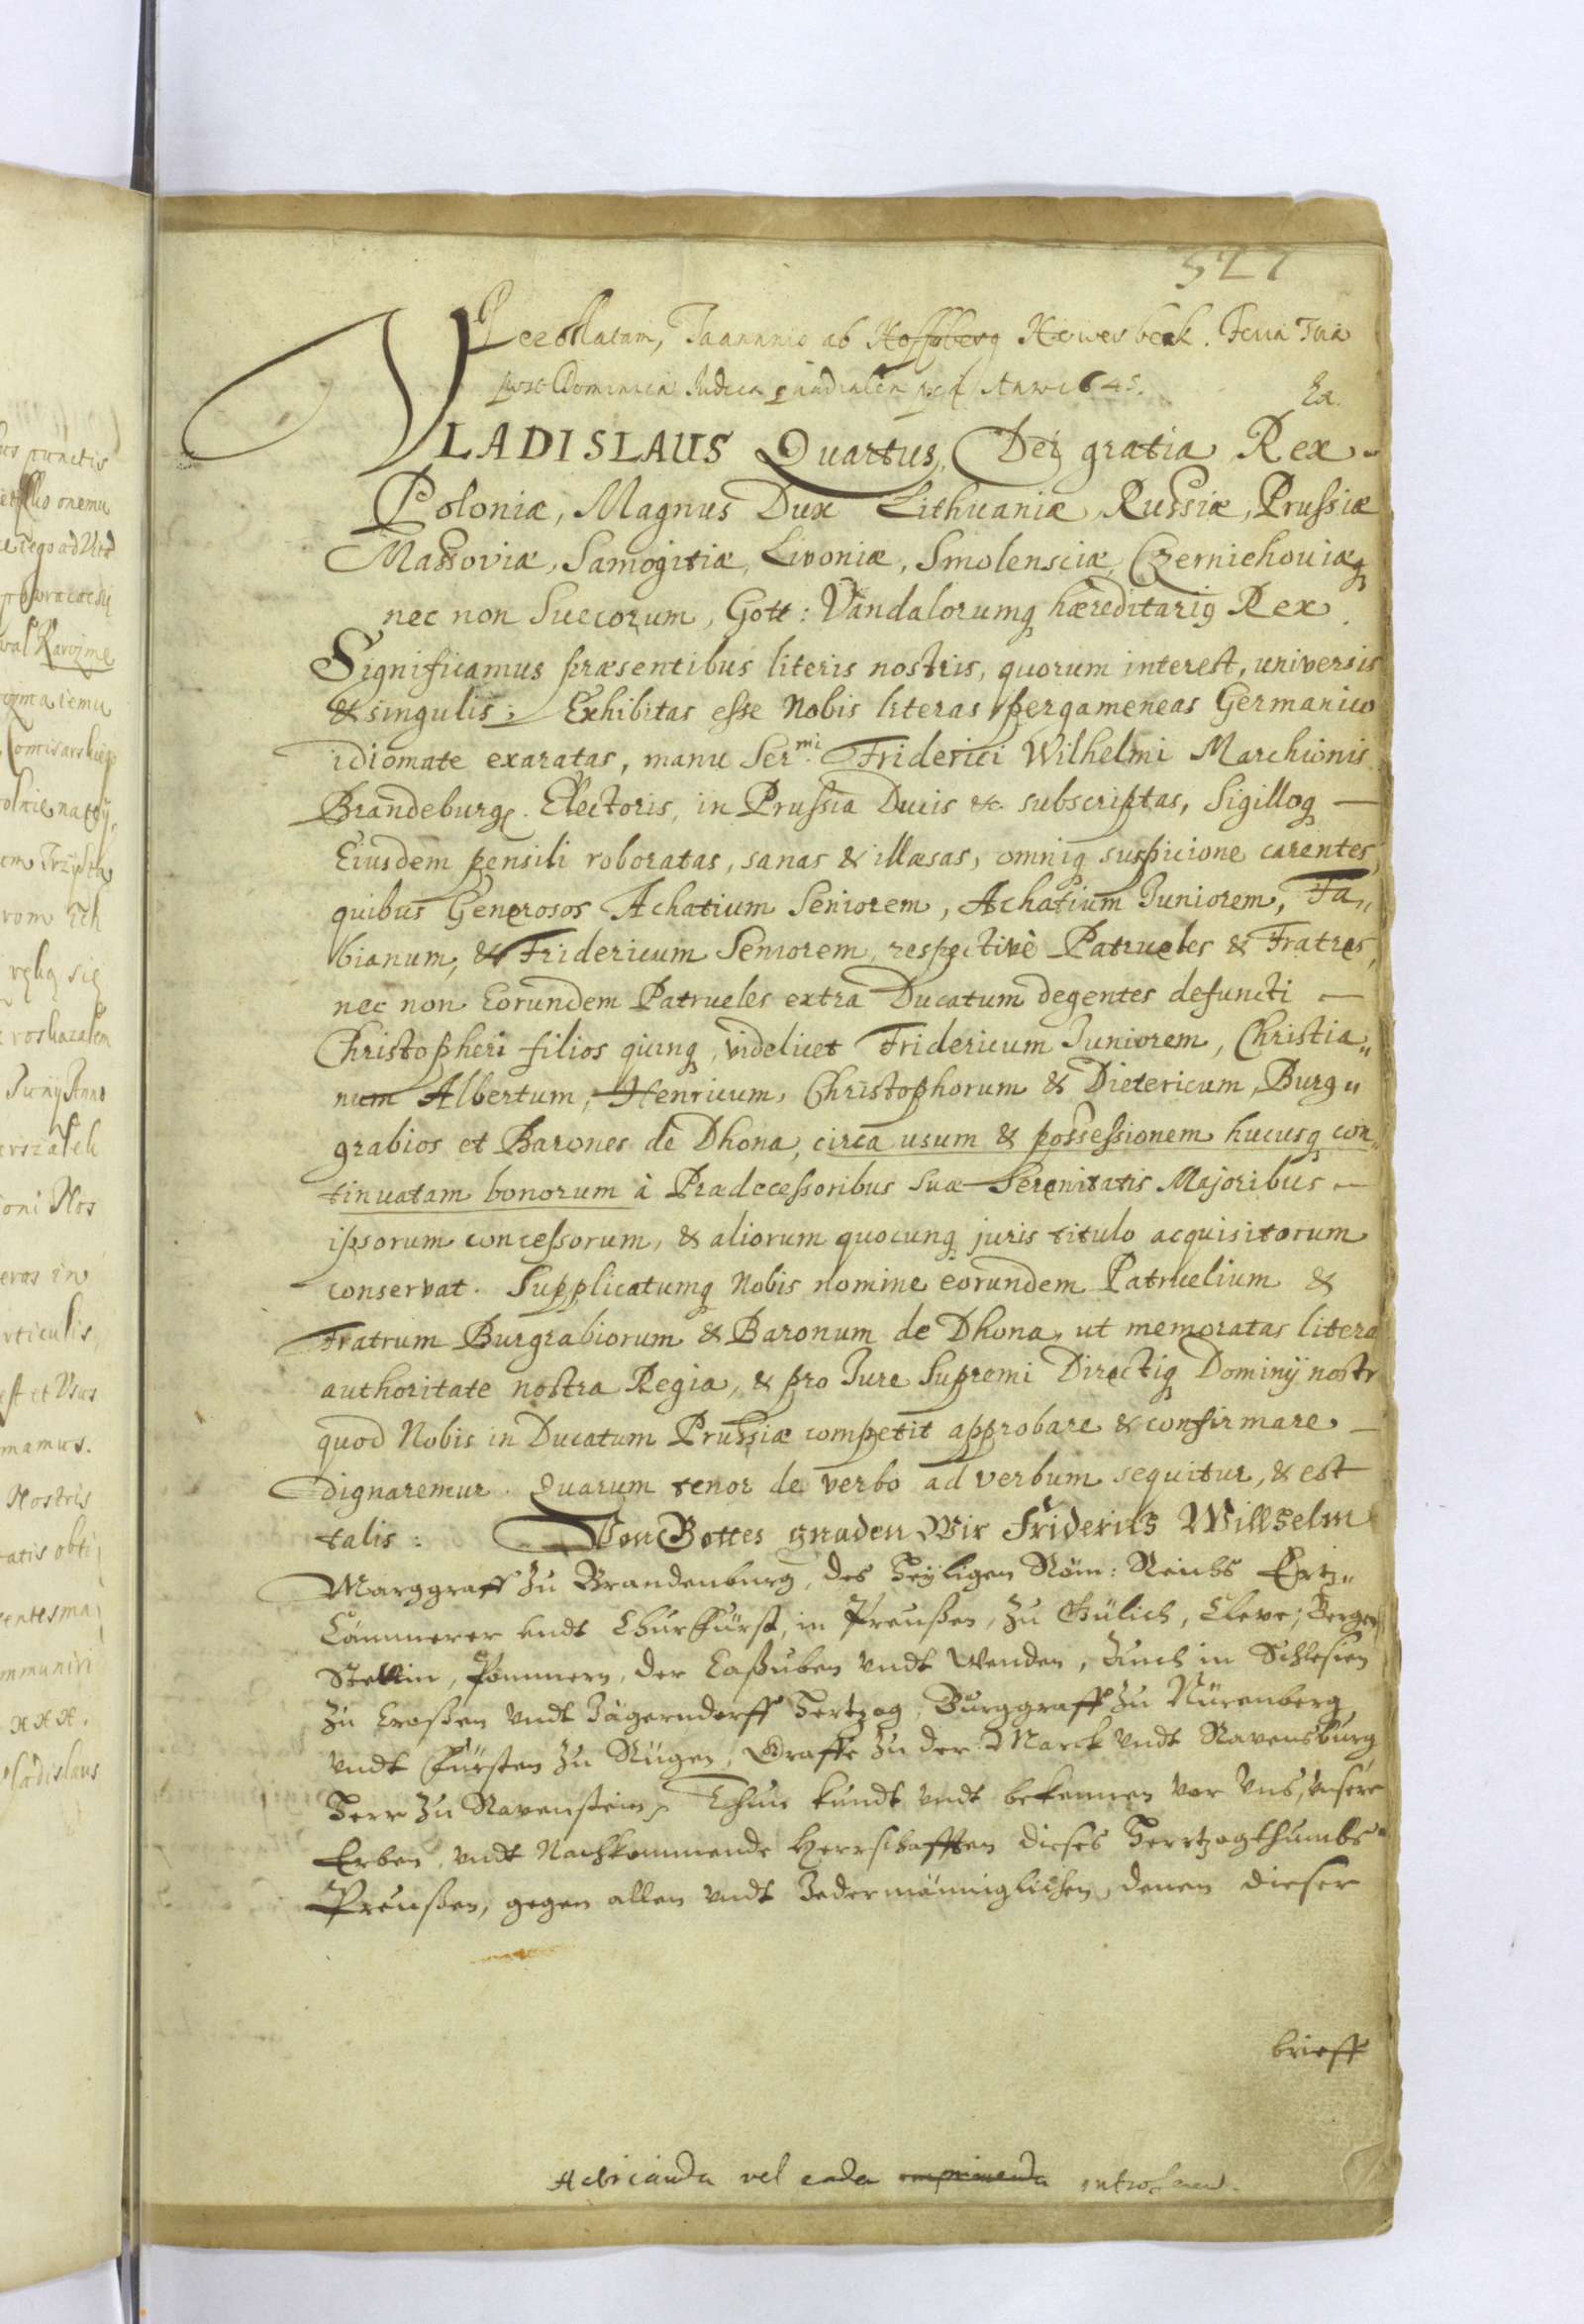 527
ab Hoffberg
post Judica Anno 1645.
VLADISLAUS Quartus, Dei gratia Rex
Poloniæ, Magnus Dux Lithuaniæ, Russiæ, Prussiæ
Massoviæ, Samogitiæ, Livoniæ, Smolensciæ, Czernichoviæq
nec non Suecorum, Gott: Vandalorumq hæreditariq Rex.
Significamus præsentibus literis nostris, quorum interest, universis
& singulis; Exhibitas esse Nobis literas pergameneas Germanico
idiomate exaratas, manu Ser.mi Friderici Wilhelmi Marchionis
Brandeburg. Electoris, in Prussia Ducis &c. subscriptas, Sigilloq —
Eiusdem pensili roboratas, sanas & illæsas, omniq suspicione carentes,
quibus Generosos Achatium Seniorem, Achatium Juniorem, Fa„
bianum, & Fridericum Seniorem, respectivè Patrueles & Fratres,
nec non Eorundem Patrueles extra Ducatum degentes defuncti —
Christopheri filios quinq, videlicet Fridericum Juniorem, Christia„
num Albertum, Henricum, Christophorum & Dietericum, Burg„
grabios et Barones de Dhona, circa usum & possessionem hucusq con„
tinuatam bonorum à Prædecessoribus Suæ Serenitatis Majoribus —
ipsorum concessorum, & aliorum quocunq juris titulo acquisitorum
conservat. Supplicatumq Nobis nomine eorundem Patruelium &
Fratrum Burgrabiorum & Baronum de Dhona, ut memoratas litera
authoritate nostra Regia, & pro Jure Supremi Directiq Dominij nostr
quod Nobis in Ducatum Prussiæ competit approbare & confirmare —
dignaremur. Quarum tenor de verbo ad verbum sequitur, & est
talis: Von Gottes gnaden Wir Friderich Willhelm
Marggraff zu Brandenburg, des Heyligen Röm: Reichs Ertz„
Cämmerer undt Churfürst, in Preußen, zu Gülich, Cleve, Bergen
Stettin, Pommern, der Caßuben undt Wenden, Auch in Schlesien
zu Croßen undt Jägerndorff Hertzog, Burggraff zu Nürenberg
undt Fürsten zu Rügen, Graffe zu der Marck undt Ravensburg
Herr zu Ravenstein, Thun kundt undt bekennen vor Uns, Unsere
Erben, undt Nachkommende Herrschafften dieses Hertzogthumbs
Preußen, gegen allen undt Jedermänniglichen, denen dieser
brieff
vel